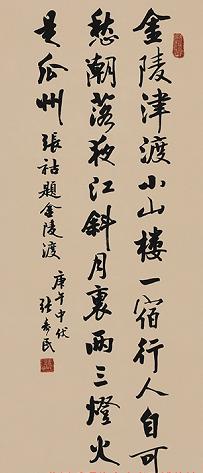 金陵津渡小山樓一宿行人自可
愁潮落夜江斜月裏兩三燈火
是瓜州 張祜題金陵渡
庚午中伏